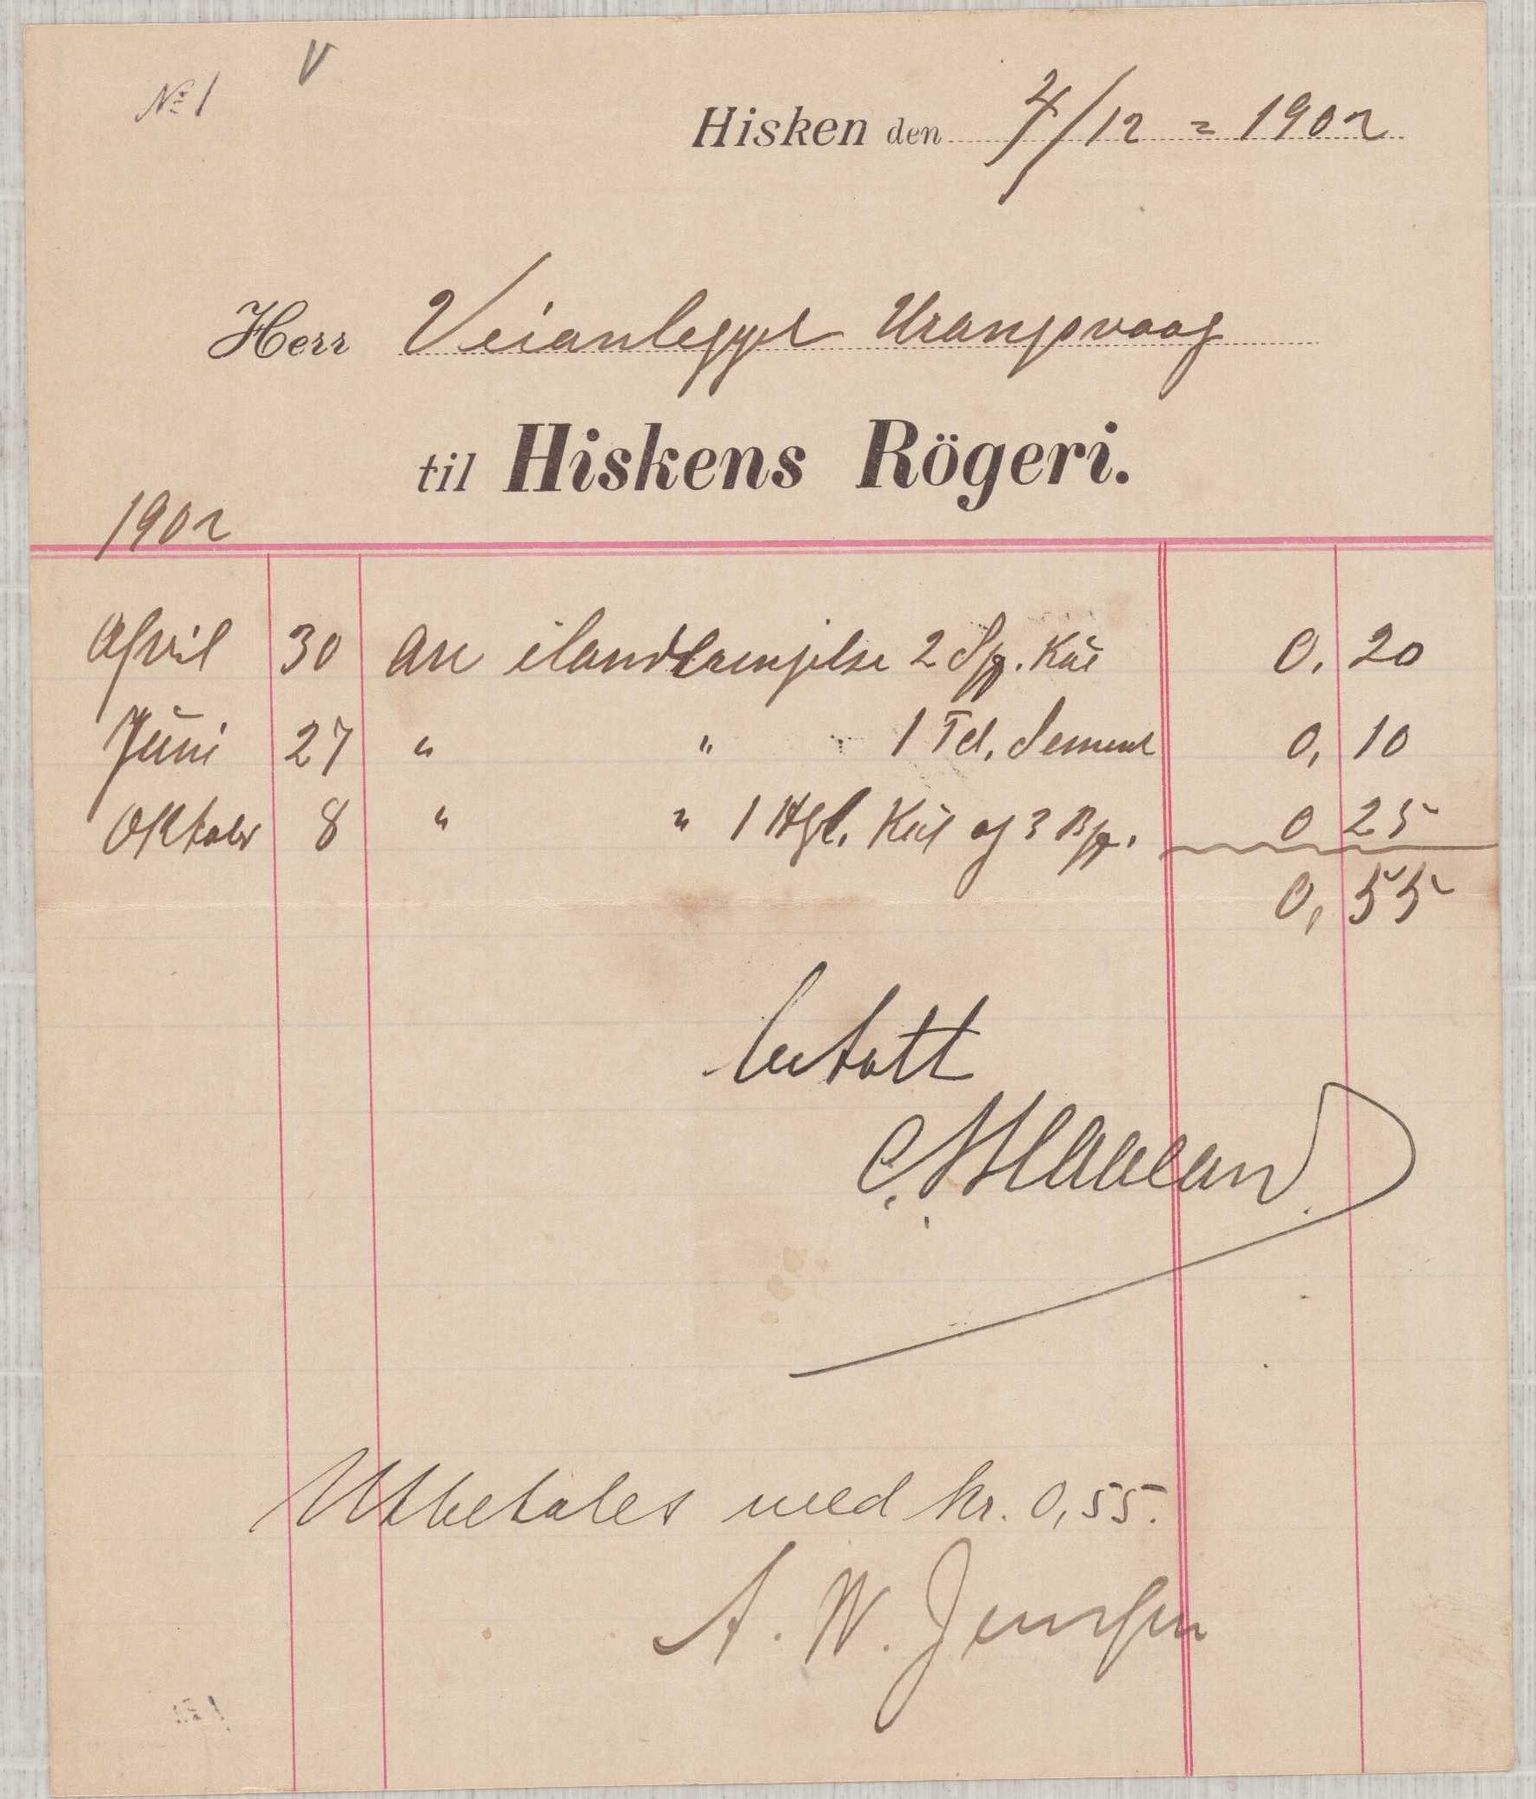 No 1 V
Hisken den 4/12 = 1902
Herr Veianlegget Urangsvaag
til Hiskens Rögeri.
1902
April 30 An ilandbringelse 2 Sp. Kul 0, 20
Juni 27 " " 1 Td. Sement 0, 10
Oktober 8 " " 1 Hgl. Kul og 3 Bp. 0 25
0, 55
betalt
Utbetales med kr. 0,55.
A. W. Jensen